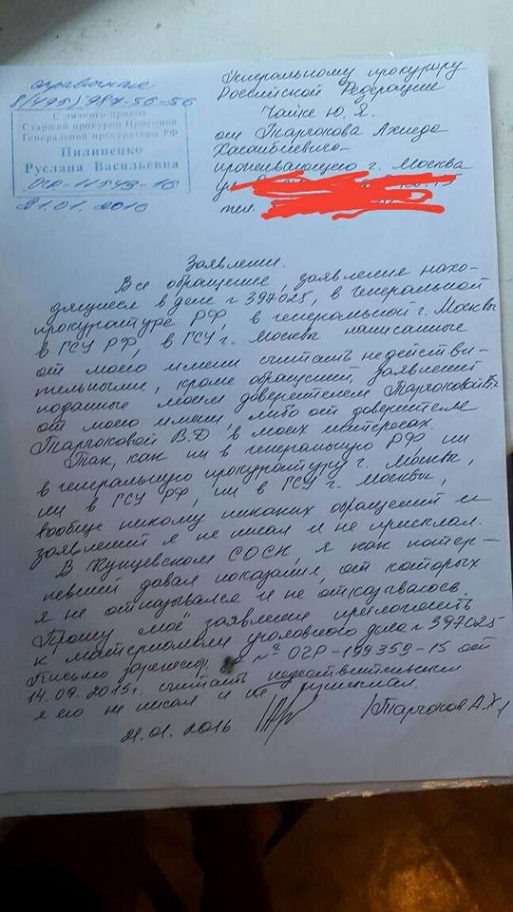 справочная
8(495)987-56-56
С личного приема
Старший прокурор Приемной
Генеральной прокуратуры РФ
Пилипенко
Руслана Васильевна
ОГР-11543-16
21.01.2016
Генеральному прокурору
Российской Федерации
Чайке Ю. Я.
от Таргокова Ахмеда
Хасанбиевича
проживающего г. Москва
тел.
Заявление.
Все обращение, заявление нахо-
дящиеся в деле № 397025, в генеральной
прокуратуре РФ, в генеральной г. Москвы
в ГСУ РФ, в ГСУ г. Москвы написанные
от моего имени считать недействи-
тельными, кроме обращений, заявлений
поданные моим доверителем Таргоковой В.Д.
от моего имени, либо от доверителе
Таргоковой В.Д в моих интересах.
Так, как ни в генеральную РФ ни
в генеральную прокуратуру г. Москвы,
ни в ГСУ РФ, ни в ГСУ г. Москвы,
вообще никому никаких обращений и
заявлений я не писал и не присылал.
В Кунцевском СОСК, я как потер-
певший давал показания, от которых
я не отказывался и не отказываюсь.
Прошу моё заявление приложить
к материалам уголовного дела № 397025
Письмо зарегистр. № ОГР-199359-15 от
14.09.2015г. считать недействительным
я его не писал и не присылал.
21.01.2016 Таргоков А.Х.